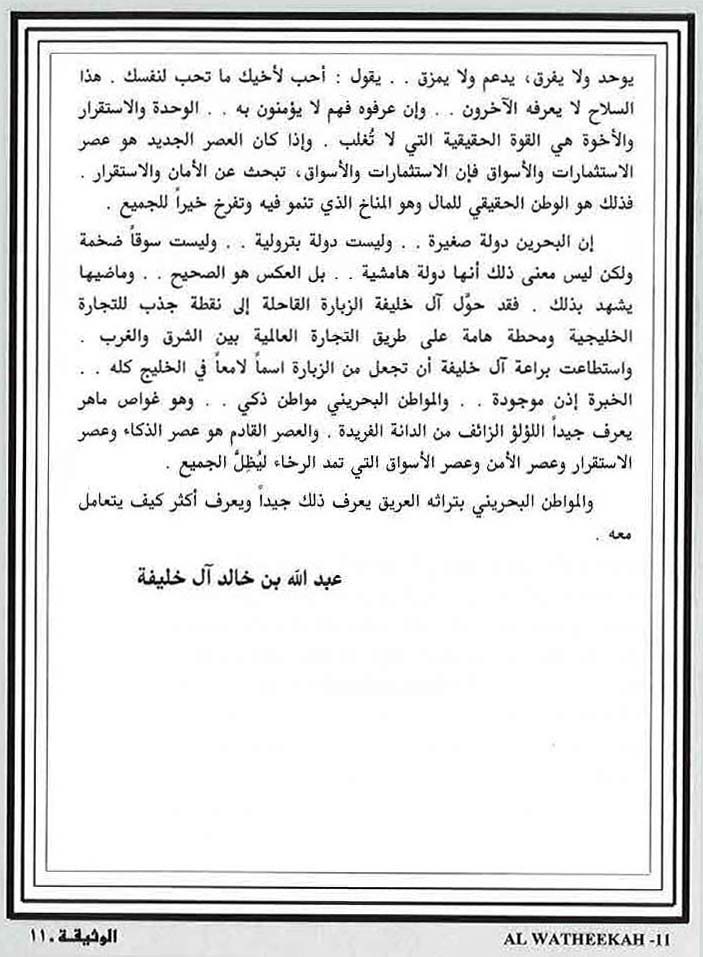 يوحد ولا يفرق، يدعم ولا يمزق . . يقول : أحب لأخيك ما تحب لنفسك . هذا
السلاح لا يعرفه الآخرون . . وإن عرفوه فهم لا يؤمنون به . . الوحدة والاستقرار
والأخوة هي القوة الحقيقية التي لا تُغلب . وإذا كان العصر الجديد هو عصر
الاستثمارات والأسواق فإن الاستثمارات والأسواق، تبحث عن الأمان والاستقرار .
فذلك هو الوطن الحقيقي للمال وهو المناخ الذي تنمو فيه وتفرخ خيراً للجميع .
إن البحرين دولة صغيرة . . وليست دولة بترولية . . وليست سوقاً ضخمة
ولكن ليس معنى ذلك أنها دولة هامشية . . بل العكس هو الصحيح . . وماضيها
يشهد بذلك . فقد حوَّل آل خليفة الزبارة القاحلة إلى نقطة جذب للتجارة
الخليجية ومحطة هامة على طريق التجارة العالمية بين الشرق والغرب .
واستطاعت براعة آل خليفة أن تجعل من الزبارة اسماً لامعاً في الخليج كله . .
الخبرة إذن موجودة . . والمواطن البحريني مواطن ذكي . . وهو غواص ماهر
يعرف جيداً اللؤلؤ الزائف من الدانة الفريدة . والعصر القادم هو عصر الذكاء وعصر
الاستقرار وعصر الأمن وعصر الأسواق التي تمد الرخاء ليُظِلُّ الجميع .
والمواطن البحريني بتراثه العريق يعرف ذلك جيداً ويعرف أكثر كيف يتعامل
معه .
عبد الله بن خالد آل خليفة
الوثيقـة ـ ١١
AL WATHEEKAH -11